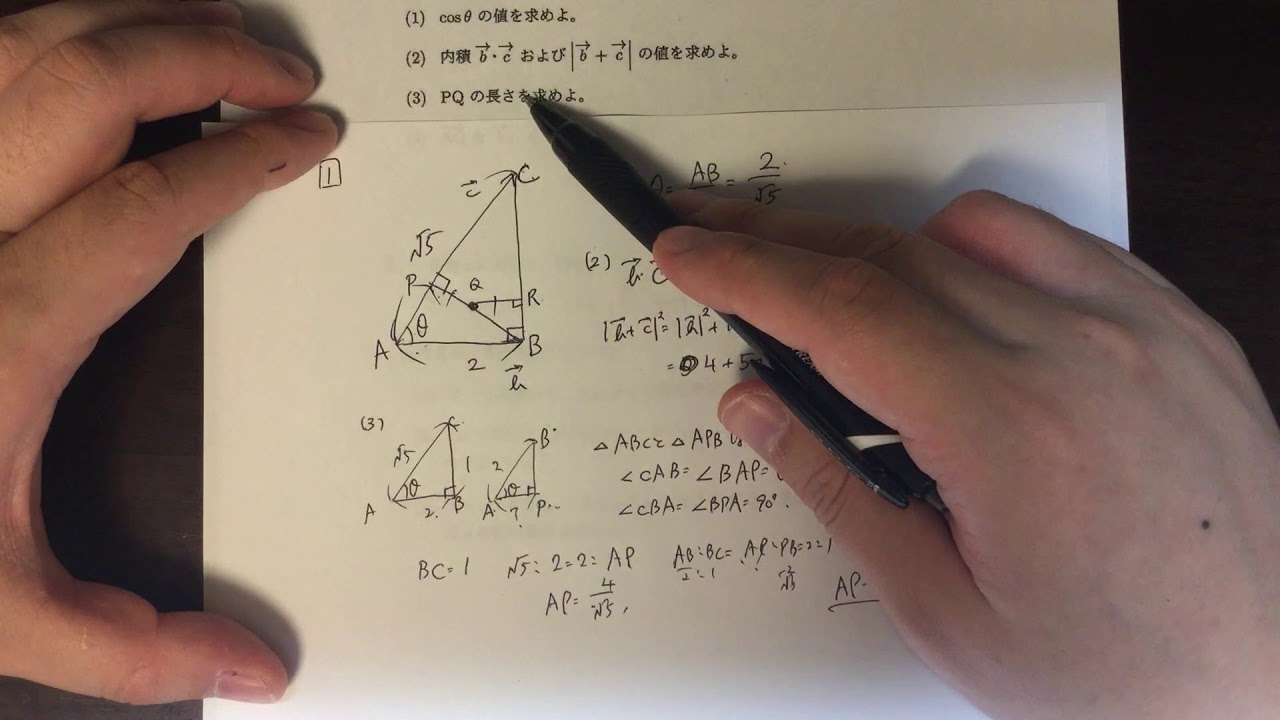 (1) cosθ の値を求めよ。
(2) 内積 b→・c→ および |b→ + c→| の値を求めよ。
(3) PQ の長さを求めよ。
1
c→ C
√5
P Q R
A θ B
2 b→
= AB = 2/√5
(2) b→ c→
|b→+c→|² = |b→|² +
= 4 + 5
(3)
√5 C 1 A θ 2 B
2 B A θ ? P
△ABCと△APB
∠CAB = ∠BAP =
∠CBA = ∠BPA = 90°.
BC = 1 √5 : 2 = 2 : AP
AP = 4/√5
AB : BC = AP : PB = 2 : 1
2 : 1 2/√5
AP